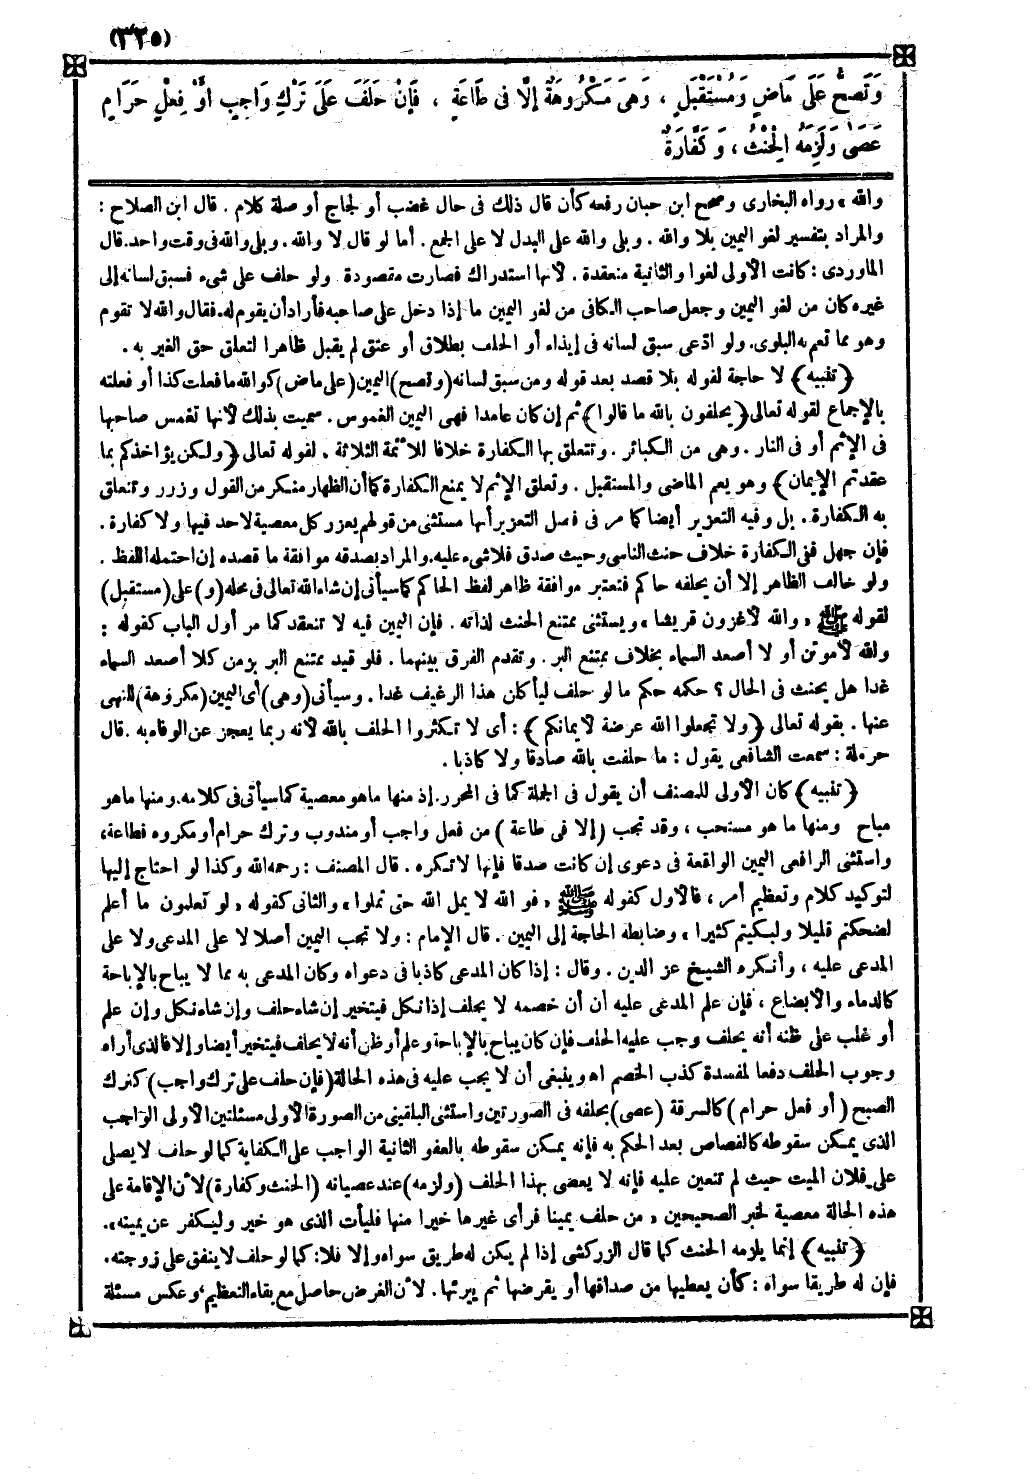 (٣٢٥)
وَتَصِحُّ عَلَى مَاضٍ وَمُسْتَقْبَلٍ ، وَهِىَ مَكْرُوهَةٌ إِلَّا فِى طَاعَةٍ ، فَإِنْ حَلَفَ عَلَى تَرْكِ وَاجِبٍ أَوْ فِعْلِ حَرَامٍ
عَصَى وَلَزِمَهُ الْحِنْثُ ، وَ كَفَّارَةٌ
والله » رواه البخارى وصحح ابن حبان رفعه كأن قال ذلك فى حال غضب أو لجاج أو صلة كلام . قال ابن الصلاح :
والمراد بتفسير لغو اليمين بلا والله . وبلى والله على البدل لا على الجمع . أما لو قال لا والله . وبلى والله فى وقت واحد. قال
الماوردى : كانت الأولى لغوا والثانية منعقدة . لأنها استدراك فصارت مقصودة ولو حلف على شىء فسبق لسانه إلى
غيره كان من لغو اليمين وجعل صاحب الكافى من لغو اليمين ما إذا دخل على صاحبه فأراد أن يقوم له. فقال والله لا تقوم
وهو مما تعم به البلوى. ولو ادّعى سبق لسانه فى إيذاء أو الحلف بطلاق أو عتق لم يقبل ظاهرا لتعلق حق الغير به .
﴿تنبيه﴾ لا حاجة لقوله بلا قصد بعد قوله ومن سبق لسانه (وتصح) اليمين (على ماض) كوالله ما فعلت كذا أو فعلته
بالإجماع لقوله تعالى ﴿يحلفون بالله ما قالوا﴾ ثم إن كان عامدا فهى اليمين الغموس . سميت بذلك لأنها تغمس صاحبها
فى الإثم أو فى النار . وهى من الكبائر . وتتعلق بها الكفارة خلافا للأئمة الثلاثة . لقوله تعالى ﴿ولكن يؤاخذكم بما
عقدتم الإيمان﴾ وهو يعم الماضى والمستقبل . وتعلق الإثم لا يمنع الكفارة كما أن الظهار منكر من القول وزور وتتعلق
به الكفارة . بل وفيه التعزير أيضا كما مر فى فصل التعزير أنها مستثنى من قولهم يعزر كل معصية لا حد فيها ولا كفارة .
فإن جهل ففى الكفارة خلاف حنث الناسى وحيث صدق فلا شىء عليه. والمراد بصدقه موافقة ما قصده إن احتمله اللفظ .
ولو خالف الظاهر إلا أن يحلفه حاكم فتعتبر موافقة ظاهر لفظ الحاكم كما سيأتى إن شاء الله تعالى فى محله (و) على (مستقبل)
لقوله ﷺ « والله لأغزون قريشا » ويستثنى ممتنع الحنث لذاته . فإن اليمين فيه لا تنعقد كما مر أول الباب كقوله :
والله لأموتن أو لا أصعد السماء بخلاف ممتنع البر . وتقدم الفرق بينهما . فلو قيد ممتنع البر بزمن كلا أصعد السماء
غدا هل يحنث فى الحال ؟ حكمه حكم ما لو حلف ليأكلن هذا الرغيف غدا . وسيأتى (وهى) أى اليمين (مكروهة) للنهى
عنها . بقوله تعالى ﴿ولا تجعلوا الله عرضة لأيمانكم﴾ : أى لا تكثروا الحلف بالله لأنه ربما يعجز عن الوفاء به . قال
حرملة : سمعت الشافعى يقول : ما حلفت بالله صادقا ولا كاذبا .
﴿تنبيه﴾ كان الأولى للمصنف أن يقول فى الجملة كما فى المحرر. إذ منها ما هو معصية كما سيأتى فى كلامه. ومنها ما هو
مباح ومنها ما هو مستحب ، وقد تجب (إلا فى طاعة) من فعل واجب أو مندوب وترك حرام أو مكروه فطاعة،
واستثنى الرافعى اليمين الواقعة فى دعوى إن كانت صدقا فإنها لا تكره . قال المصنف : رحمه الله وكذا لو احتاج إليها
لتوكيد كلام وتعظيم أمر ، فالأول كقوله ﷺ « فو الله لا يمل الله حتى تملوا » والثانى كقوله « لو تعلمون ما أعلم
لضحكتم قليلا ولبكيتم كثيرا » وضابطه الحاجة إلى اليمين . قال الإمام : ولا تجب اليمين أصلا لا على المدعى ولا على
المدعى عليه ، وأنكره الشيخ عز الدين . وقال : إذا كان المدعى كاذبا فى دعواه وكان المدعى به مما لا يباح بالإباحة
كالدماء والأبضاع ، فإن علم المدعى عليه أن أن خصمه لا يحلف إذا نكل فيتخير إن شاء حلف وإن شاء نكل وإن علم
أو غلب على ظنه أنه يحلف وجب عليه الحلف فإن كان يباح بالإباحة وعلم أو ظن أنه لا يحلف فيتخير أيضا وإلا فالذى أراه
وجوب الحلف دفعا لمفسدة كذب الخصم اه وينبغى أن لا يجب عليه فى هذه الحالة (فإن حلف على ترك واجب) كترك
الصبح (أو فعل حرام) كالسرقة (عصى) بحلفه فى الصورتين واستثنى البلقينى من الصورة الأولى مسئلتين الأولى الواجب
الذى يمكن سقوطه كالقصاص بعد الحكم به فإنه يمكن سقوطه بالعفو الثانية الواجب على الكفاية كما لو حلف لا يصلى
على فلان الميت حيث لم تتعين عليه فإنه لا يعصى بهذا الحلف (ولزمه) عند عصيانه (الحنث وكفارة) لأن الإقامة على
هذه الحالة معصية لخبر الصحيحين « من حلف يمينا فرأى غيرها خيرا منها فليأت الذى هو خير وليكفر عن يمينه ».
﴿تنبيه﴾ إنما يلزمه الحنث كما قال الزركشى إذا لم يكن له طريق سواه وإلا فلا: كما لو حلف لا ينفق على زوجته .
فإن له طريقا سواه : كأن يعطيها من صداقها أو يقرضها ثم يبرئها . لأن الغرض حاصل مع بقاء التعظيم ، وعكس مسئلة